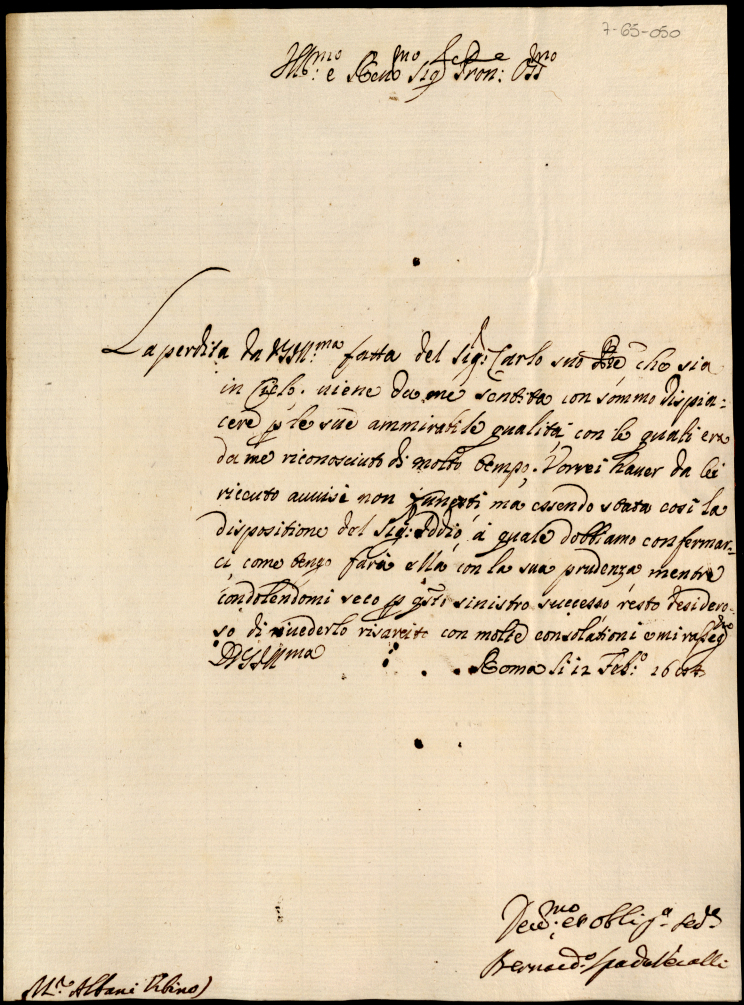 7-65-050
Ill:mo e Reu:mo Sig.r Pron: Oss:mo
La perdita da VSIll:ma fatta del Sig: Carlo suo che sia
in Cielo. uiene da me sentita con sommo dispia=
cere p le sue ammirabile qualità, con le quali era
da me riconosciuto di molto tempo. Vorrei hauer da lei
riceuto auuisi non funesti, mà essendo stata cosi la
dispositione del Sig: Iddio, à quale dobbiamo confermar=
ci come tengo farà ella con la sua prudenza mentre
condolendomi seco p q.sto sinistro successo resto desidero=
so di riuederlo risarcito con molte consolationi e mi rasseg
DVSIll:ma
Roma li 12 Feb:o
Deu:mo et oblig.
Bernard:o Spada
M.r Albani Vrbino)